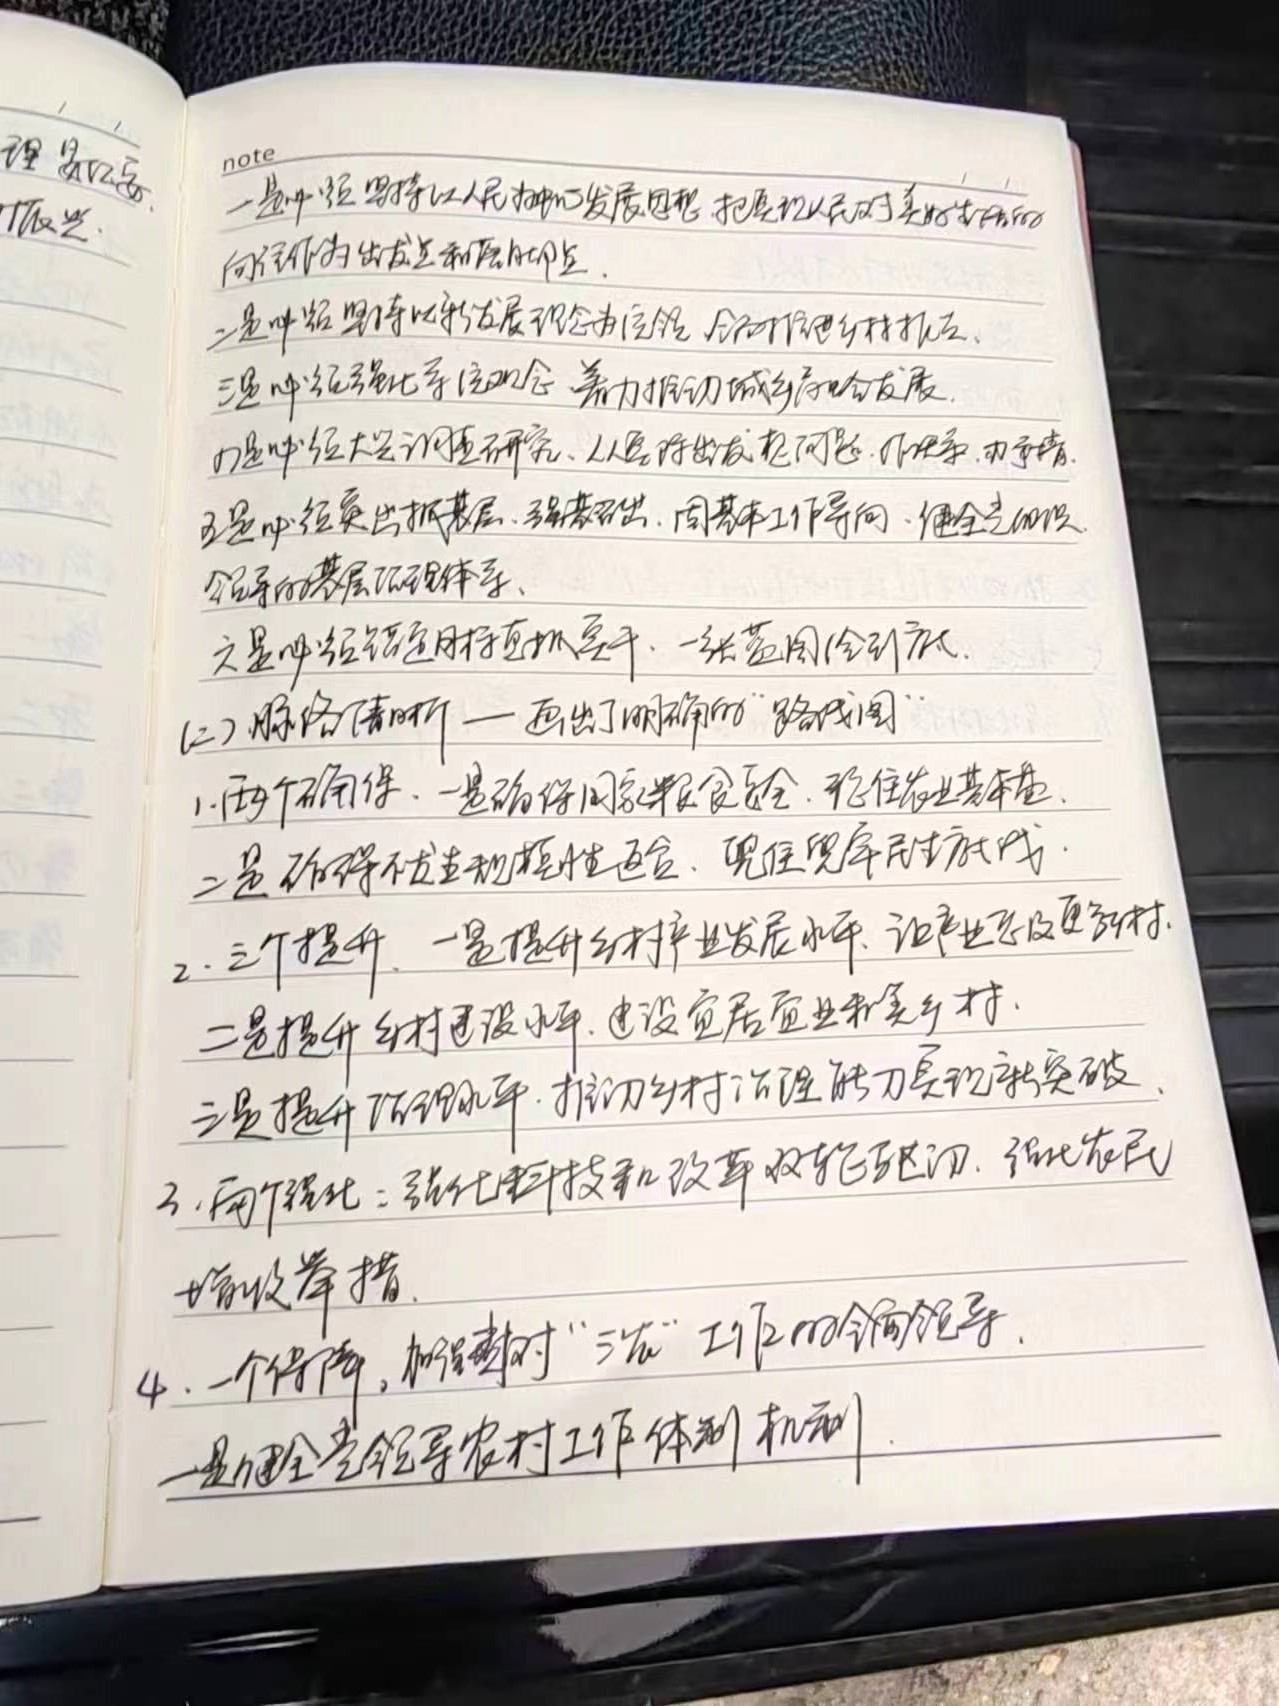 理
振兴.
note
一是必须坚持以人民为中心发展思想 把实现人民对美好生活的
向往作为出发点和落脚点.
二是必须坚持以新发展理念为引领 全面推进乡村振兴.
三是必须强化系统观念 着力推动城乡融合发展.
四是必须大兴调查研究、从实际出发想问题.作决策.办事情.
五是必须突出抓基层.强基础.固基本工作导向.健全党组织
领导的基层治理体系.
六是必须锚定目标真抓实干.一张蓝图绘到底.
(二)脉络清晰——画出了明确的"路线图"
1.两个确保.一是确保国家粮食安全.稳住农业基本盘.
二是确保不发生规模性返贫.兜住兜牢民生底线.
2.三个提升.一是提升乡村产业发展水平、让产业更多乡村.
二是提升乡村建设水平.建设宜居宜业和美乡村.
三是提升治理水平.推动乡村治理能力实现新突破.
3.两个强化:强化科技和改革双轮驱动.强化农民
增收举措.
4.一个保障,加强党对"三农"工作的全面领导.
一是健全党领导农村工作体制机制.